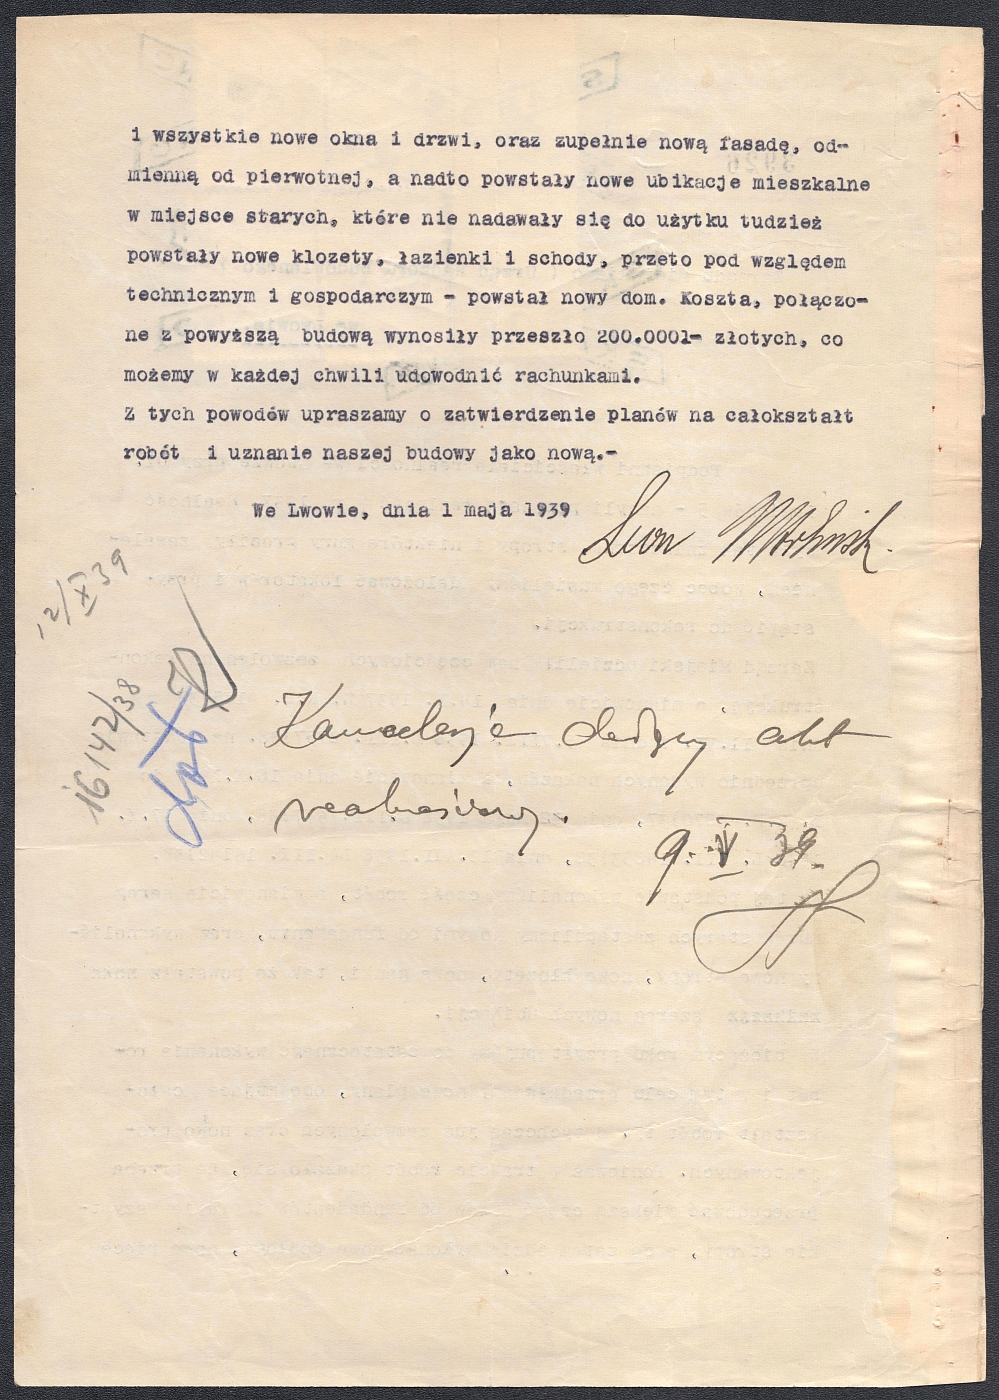 i wszystkie nowe okna i drzwi, oraz zupełnie nową fasadę, od-
mienną od pierwotnej, a nadto powstały nowe ubikacje mieszkalne
w miejsce starych, które nie nadawały się do użytku tudzież
powstały nowe klozety, łazienki i schody, przeto pod względem
technicznym i gospodarczym - powstał nowy dom. Koszta, połączo-
ne z powyższą budową wynosiły przeszło 200.000l- złotych, co
możemy w każdej chwili udowodnić rachunkami.
Z tych powodów upraszamy o zatwierdzenie planów na całokształt
robót i uznanie naszej budowy jako nową.-
We Lwowie, dnia 1 maja 1939
Leon
12/X 39
16142/38
Kancelarja dołączy akt
9. V. 39.